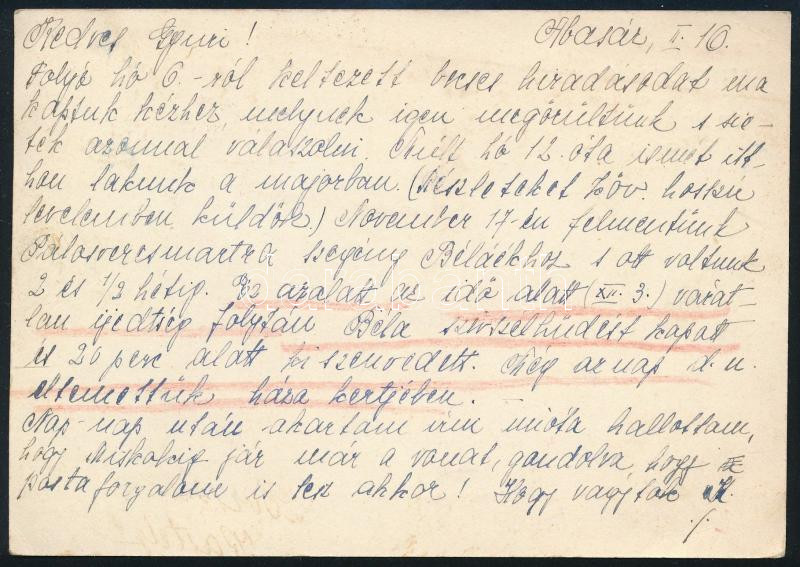 Kedves Gyuri! Abasár, II. 10.
Folyó hó 6.-ról keltezett becses hiradásodat ma
kaptuk kézhez, melynek igen megörültünk s sie-
tek azonnal válaszolni. Múlt hó 12. óta ismét itt-
hon lakunk a majorban. (Részleteket köv. hosszú
levelemben küldök.) November 17-én felmentünk
Pálosveresmartra szegény Béláékhoz s ott voltunk
2 és 1/2 hétig. Ez azalatt az idő alatt (XII. 3.) várat-
lan ijedtség folytán Béla szívszélhűdést kapott
és 20 perc alatt kiszenvedett. Még aznap d. u.
eltemettük háza kertjében.
Nap-nap után akartam írni mióta hallottam,
hogy Miskolcig jár már a vonat, gondolva, hogy
postaforgalom is lesz akkor! Hogy vagytok
./.